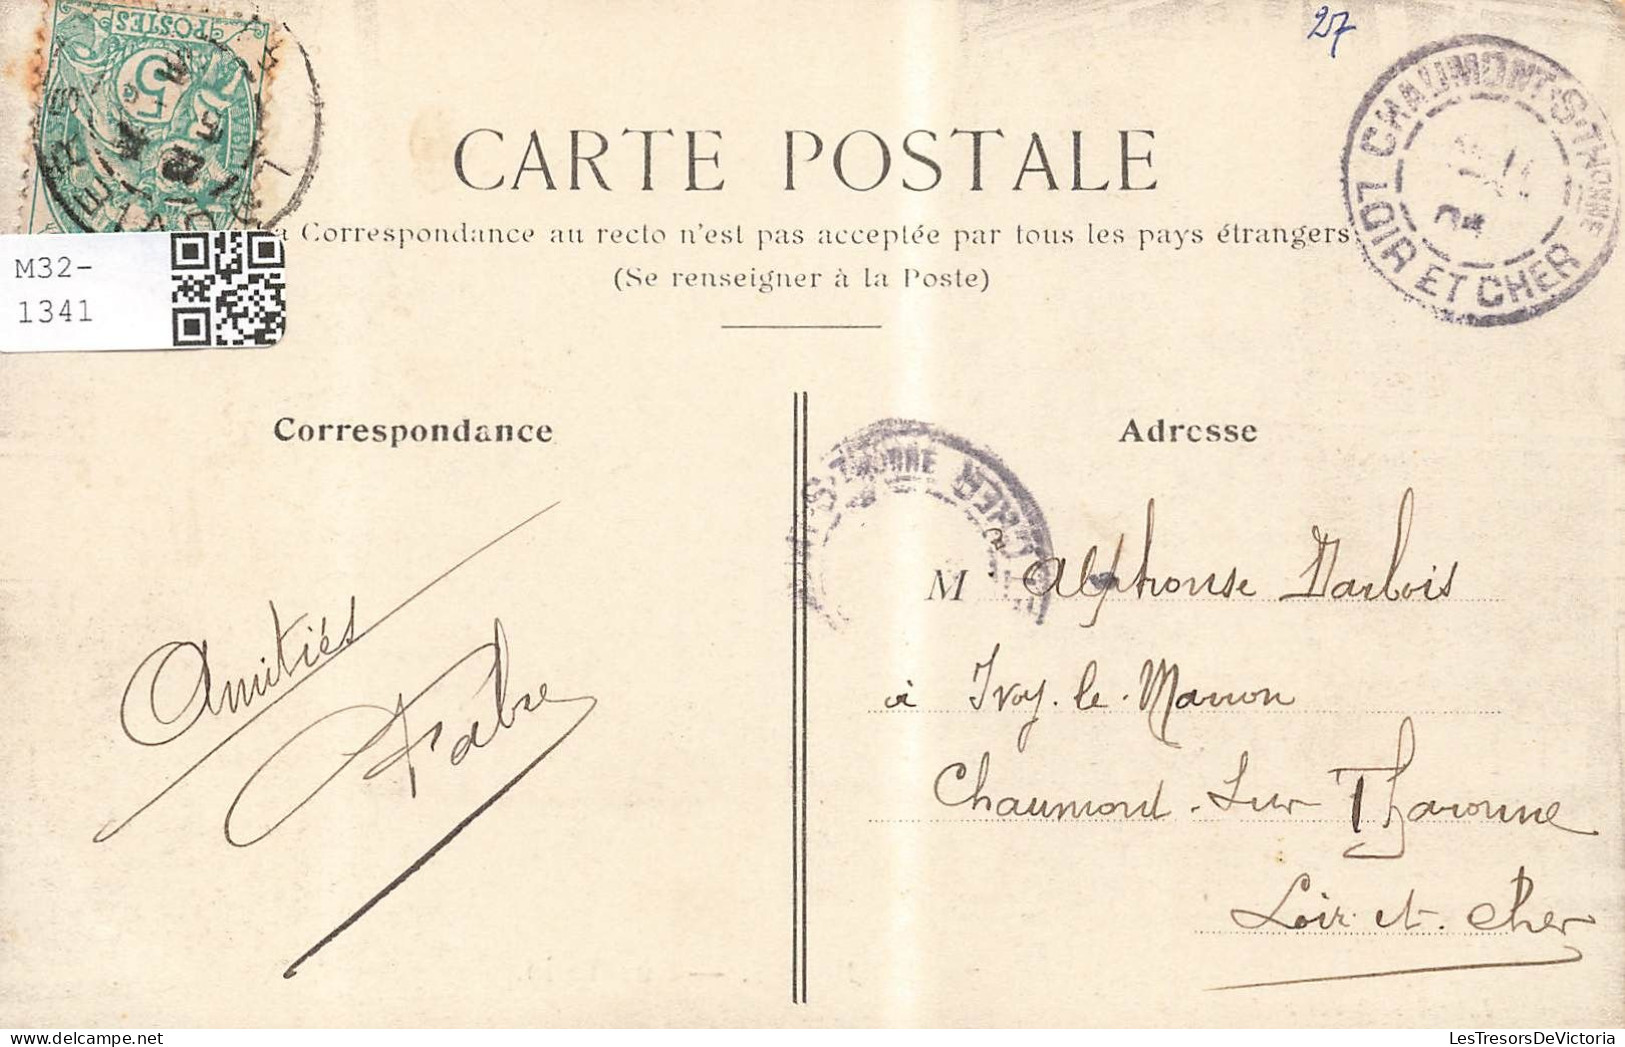 27
POSTES
5
CHAUMONT-S-THONNE
LOIR ET CHER
CARTE POSTALE
Correspondance au recto n'est pas acceptée par tous les pays étrangers
(Se renseigner à la Poste)
M32-
1341
Correspondance
Adresse
S-THONNE
CHER
Amitiés
Fabre
M Alphonse Darbois
à Ivoy-le-Marron
Chaumont-Sur Tharonne
Loir-et-Cher
LesTresorsDeVictoria